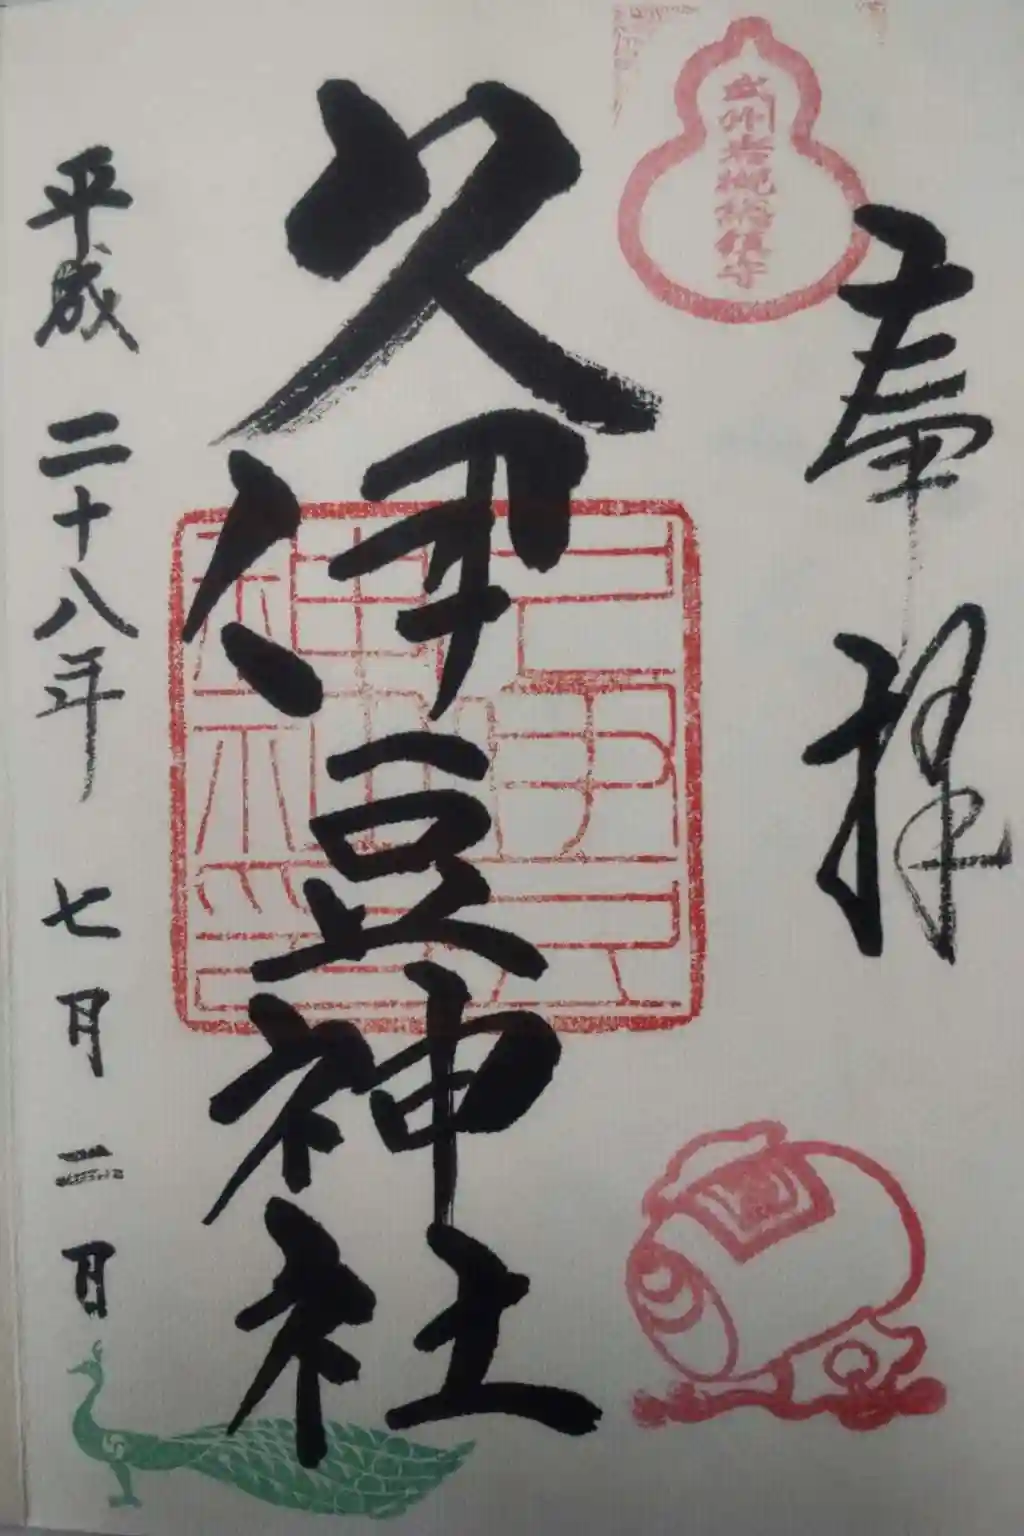 奉拝
武州岩槻総鎮守
久伊豆神社
平成二十八年七月二日